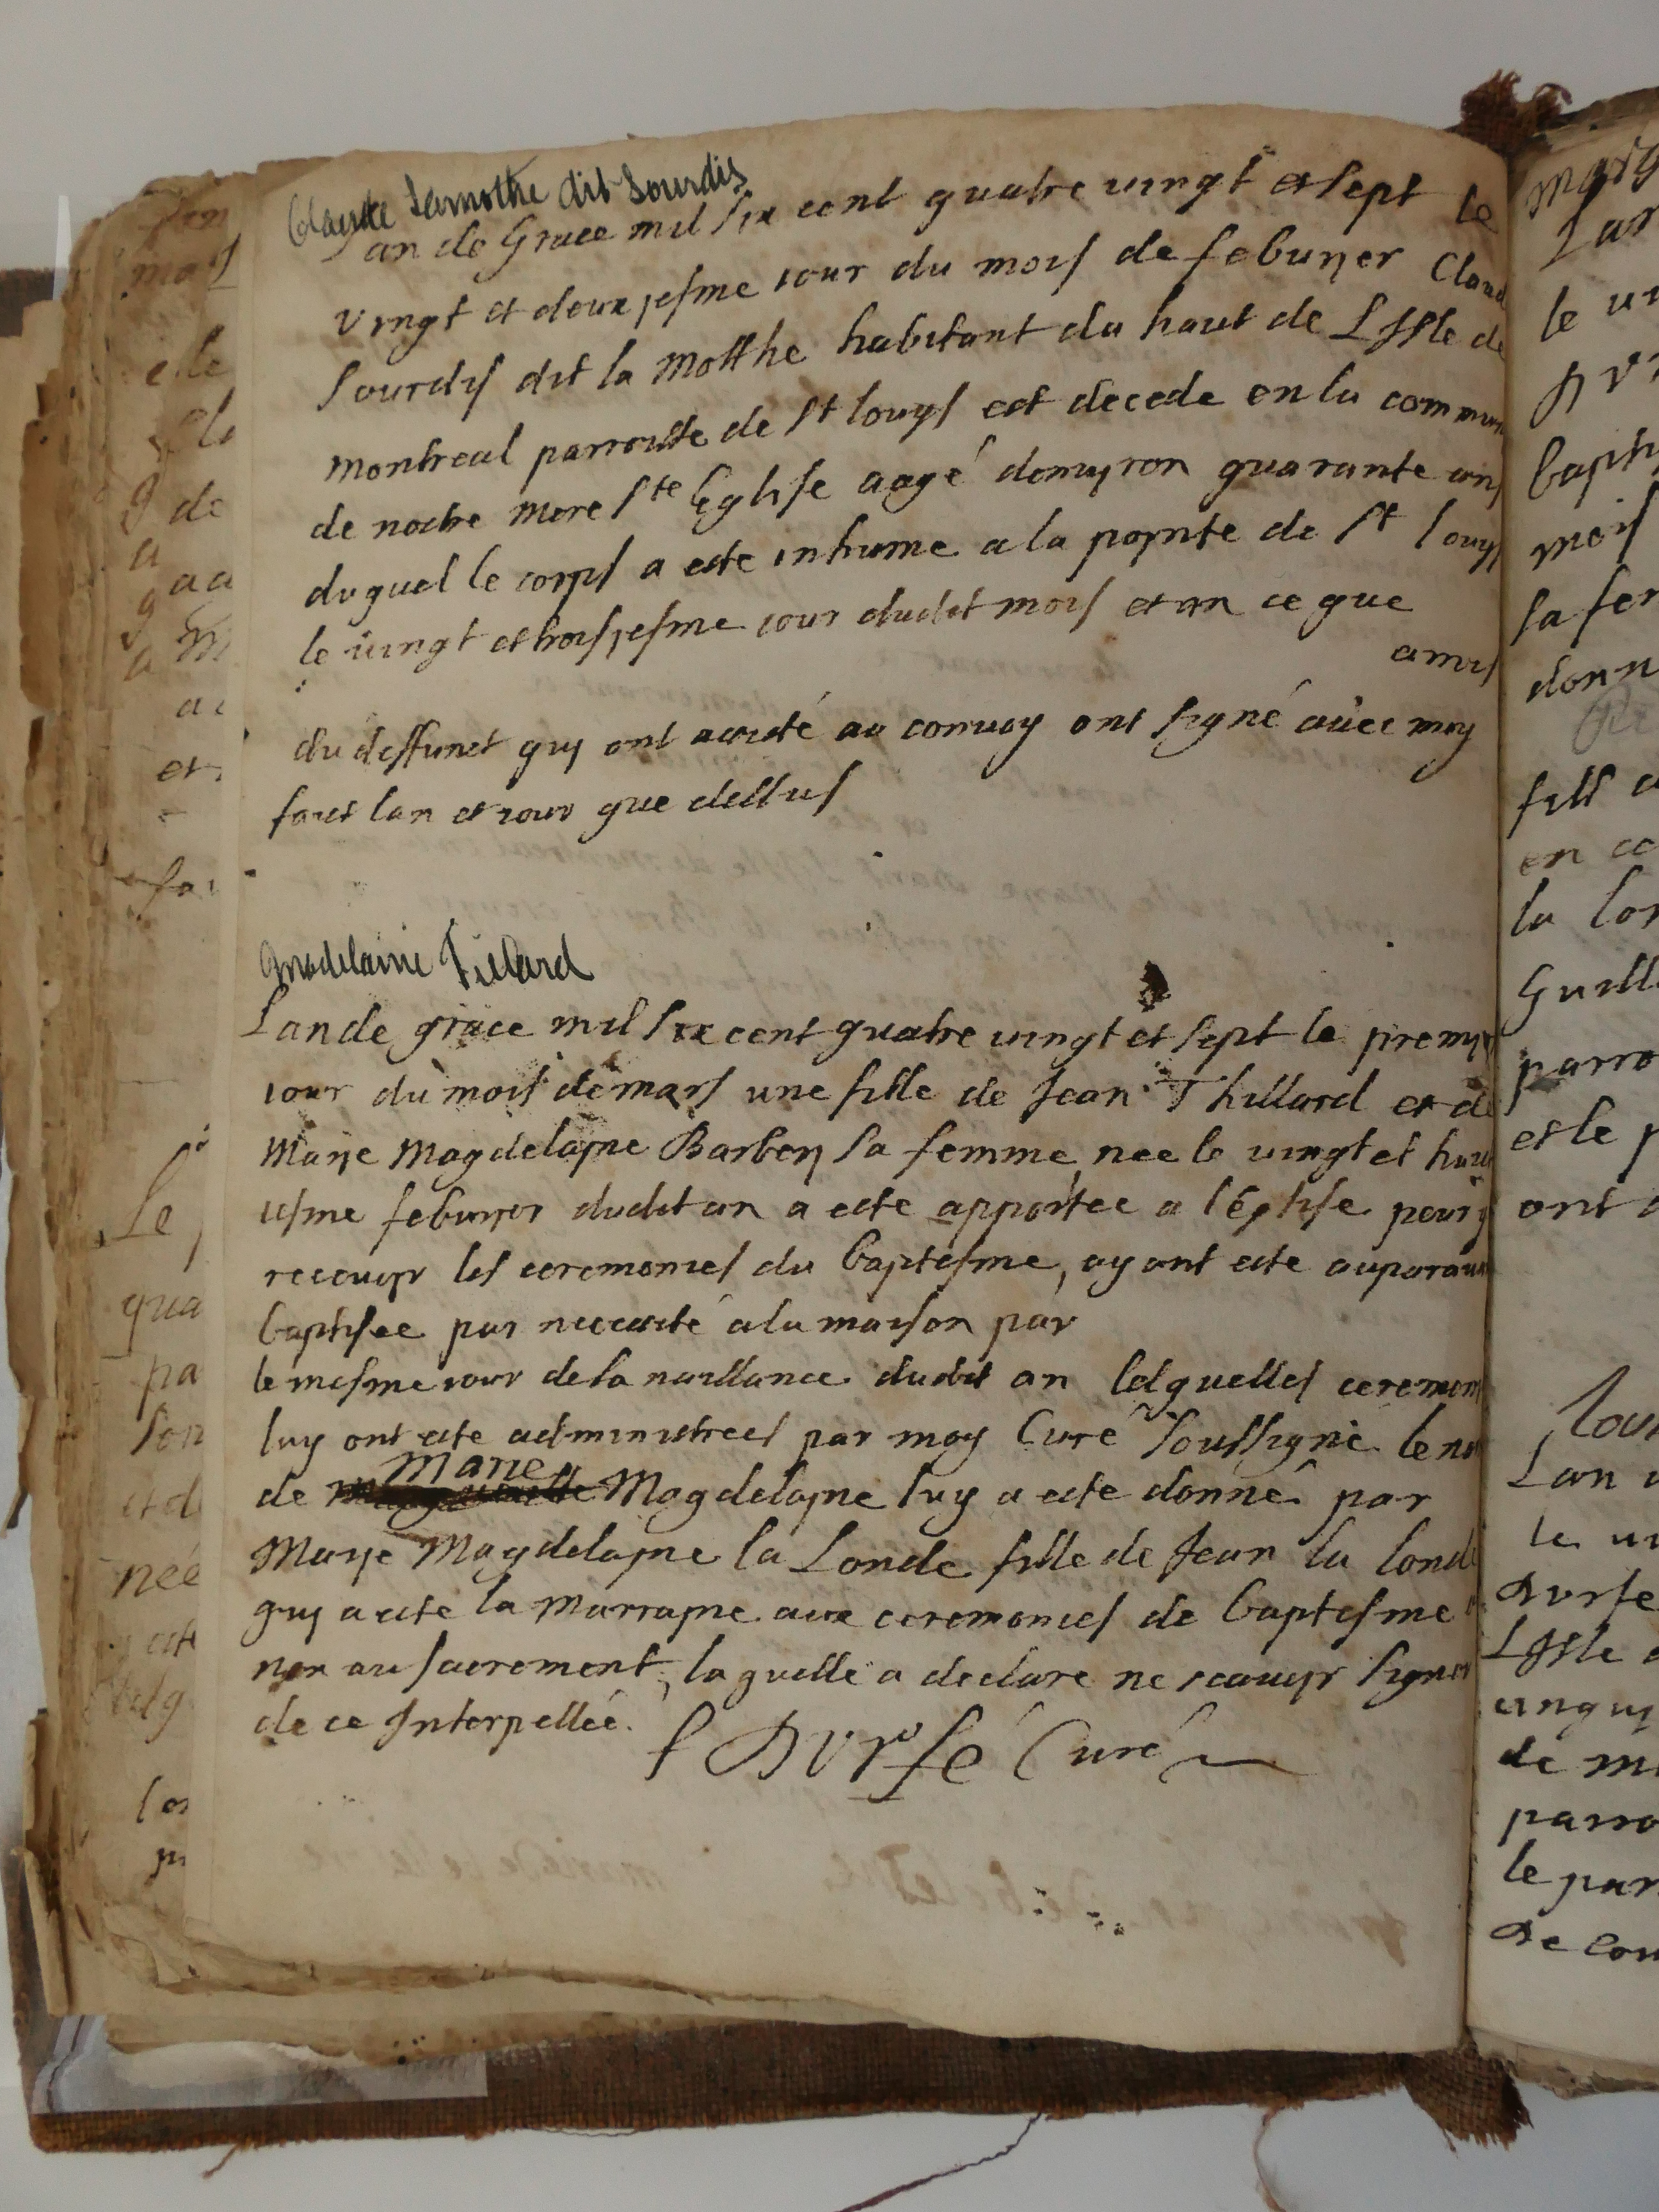 Claude Lamothe dit Sourdis
Lan de Grace mil six cent quatre vingt et sept le
vingt et deuxjesme jour du mois de febvrjer Claud
Sourdis dit la Motthe habitant du haut de L Isle de
montreal parroisse de St louys est decede en la commun
de nostre mere Ste Eglise aagé denvyron quarante ans
duquel le corps a este inhume a la poynte de St louys
le vingt et troisjesme jour dudit mois et an ce que
amis
du deffunct quy ont assisté au convoy ont signé avec moy
faict lan et jour que dessus
Madelaine Tillard
Lan de grace mil six cent quatre vingt et sept le premye
jour du mois de mars une fille de Jean Thillard et de
Marye Magdelayne Barbery sa femme nee le vingt et huict
iesme febvryer dudit an a este apportee a l'Eglise pour y
recevoyr les ceremonies du baptesme, ayant este auparava
baptisee par necessité a la maison par
le mesme jour de sa naissance dudit an lesquelles ceremon
luy ont este administrees par moy Curé soussigné le no
de Marie Magdelayne luy a este donné par
Marye Magdelayne la Londe fille de Jean la londe
quy a este la marrayne aux ceremonies de baptesme
non au sacrement, laquelle a declare ne scavoyr signer
de ce Interpellée.
f Dvrfé Curé
Le
qua
pa
son
née
mars
Lan
le vi
baptis
mois
sa fem
donn
fils
en
la lon
Guill
parro
et le p
ont
Lan
le vi
Dvrfe
L Isle
de
parro
le par
De